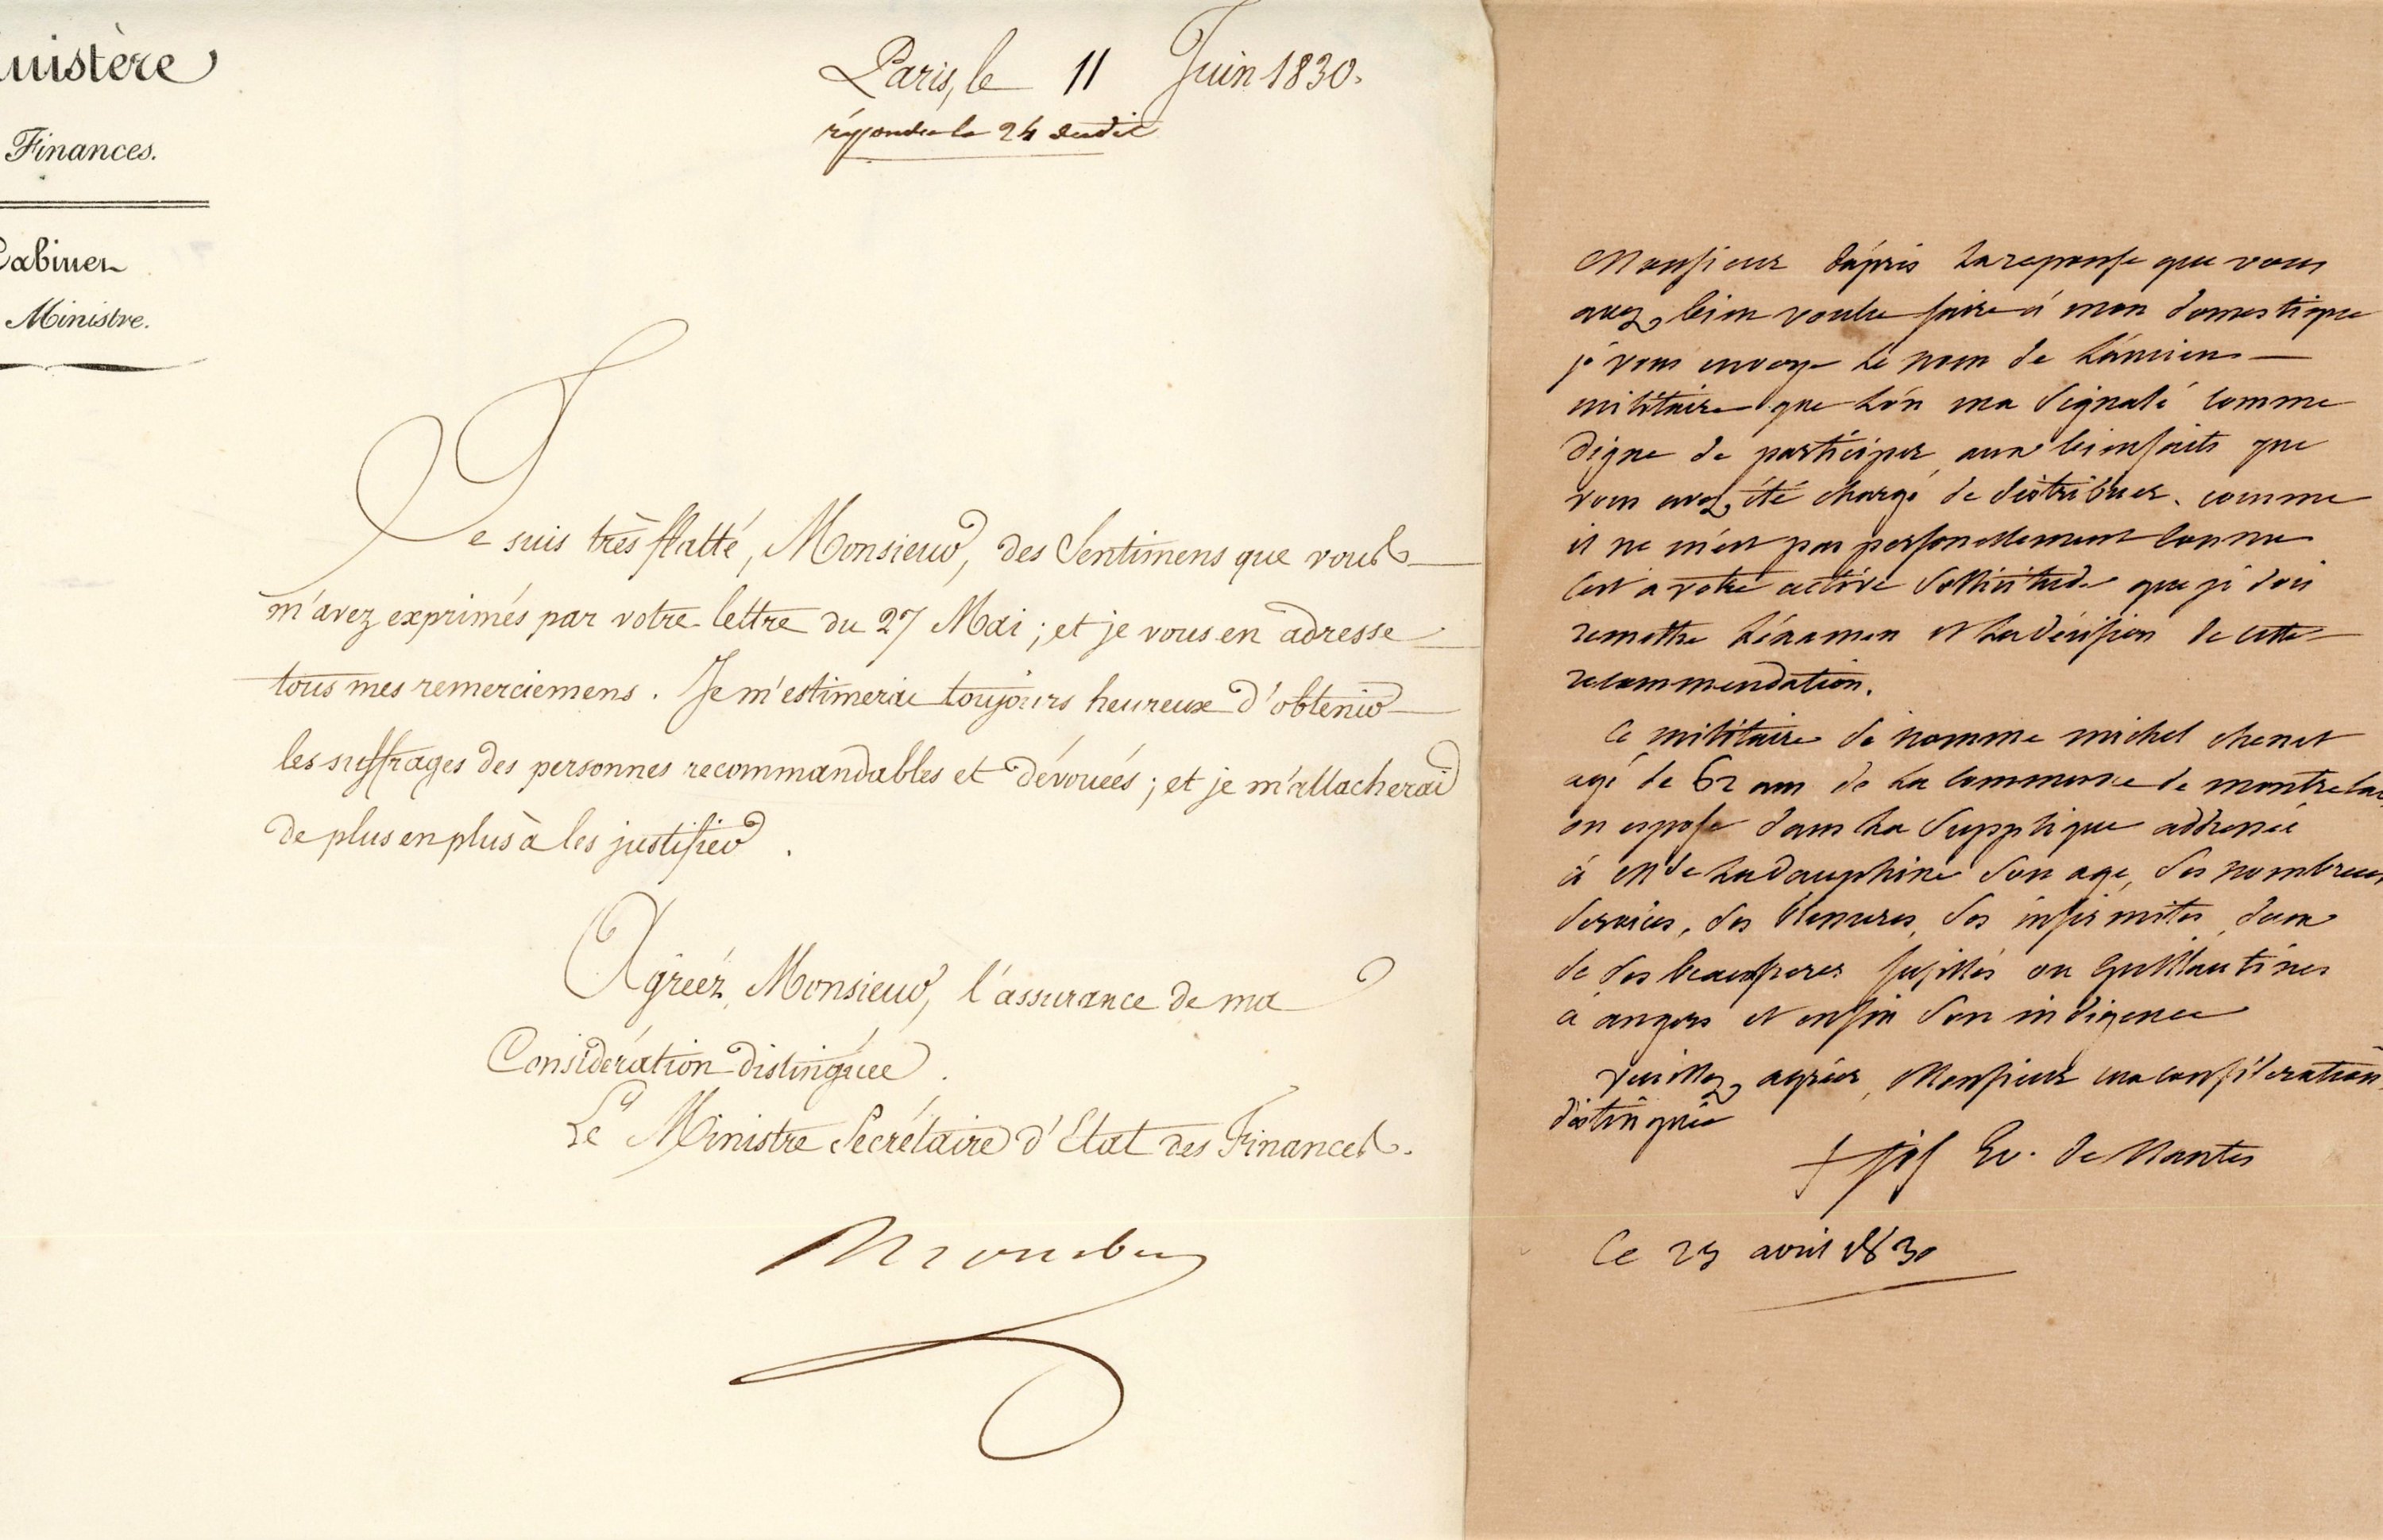 uistère
Finances.
Cabinet
Ministre.
Paris, le 11 Juin 1830.
répondu le 24 dudit
Je suis très flatté, Monsieur, des Sentimens que vous
m'avez exprimés par votre lettre du 27 Mai ; et je vous en adresse
tous mes remerciemens. Je m'estimerai toujours heureux d'obtenir
les suffrages des personnes recommandables et dévouéés ; et je m'attacherai
de plus en plus à les justifier.
Agréez, Monsieur, l'assurance de ma
Considération distinguée.
Le Ministre Secrétaire d'Etat des Finances.
Monsieur dápris la reponse que vous
avez bien voulu faire á mon domestique
je vous envoye le nom de l'ancien
militaire que l'on ma signalé comme
digne de participer aux bienfaits que
vous avez été chargé de distribuer. comme
il ne m'est pas personellement connu
cest a votre active sollicitude que je dois
remettre l'éxamen et la décision de cette
recommendation.
Ce militaire se nomme michel chenet
agé de 62 ans de la commune de montrela
on expose dans la supplique adressée
á Mde la dauphine son age, ses nombreux
services, ses blessures, ses infirmités, deux
de ses beauxfreres fusillés ou guillautinés
a angers et enfin son indigence
veuillez agréer, Monsieur ma considération
distinguée
+ jos Ev. de Nantes
Ce 23 avril 1830